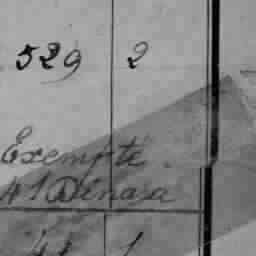 529 2
Exempte
41 Dinara
41 1